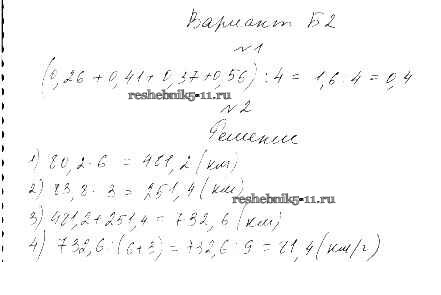 Вариант Б2
№1
(0,26 + 0,41 + 0,37 + 0,56) : 4 = 1,6 : 4 = 0,4
reshebnik5-11.ru
№2
Решение
1) 80,2 · 6 = 481,2 (км)
2) 83,8 · 3 = 251,4 (км)
reshebnik5-11.ru
3) 481,2 + 251,4 = 732,6 (км)
4) 732,6 : (6+3) = 732,6 : 9 = 81,4 (км/г)